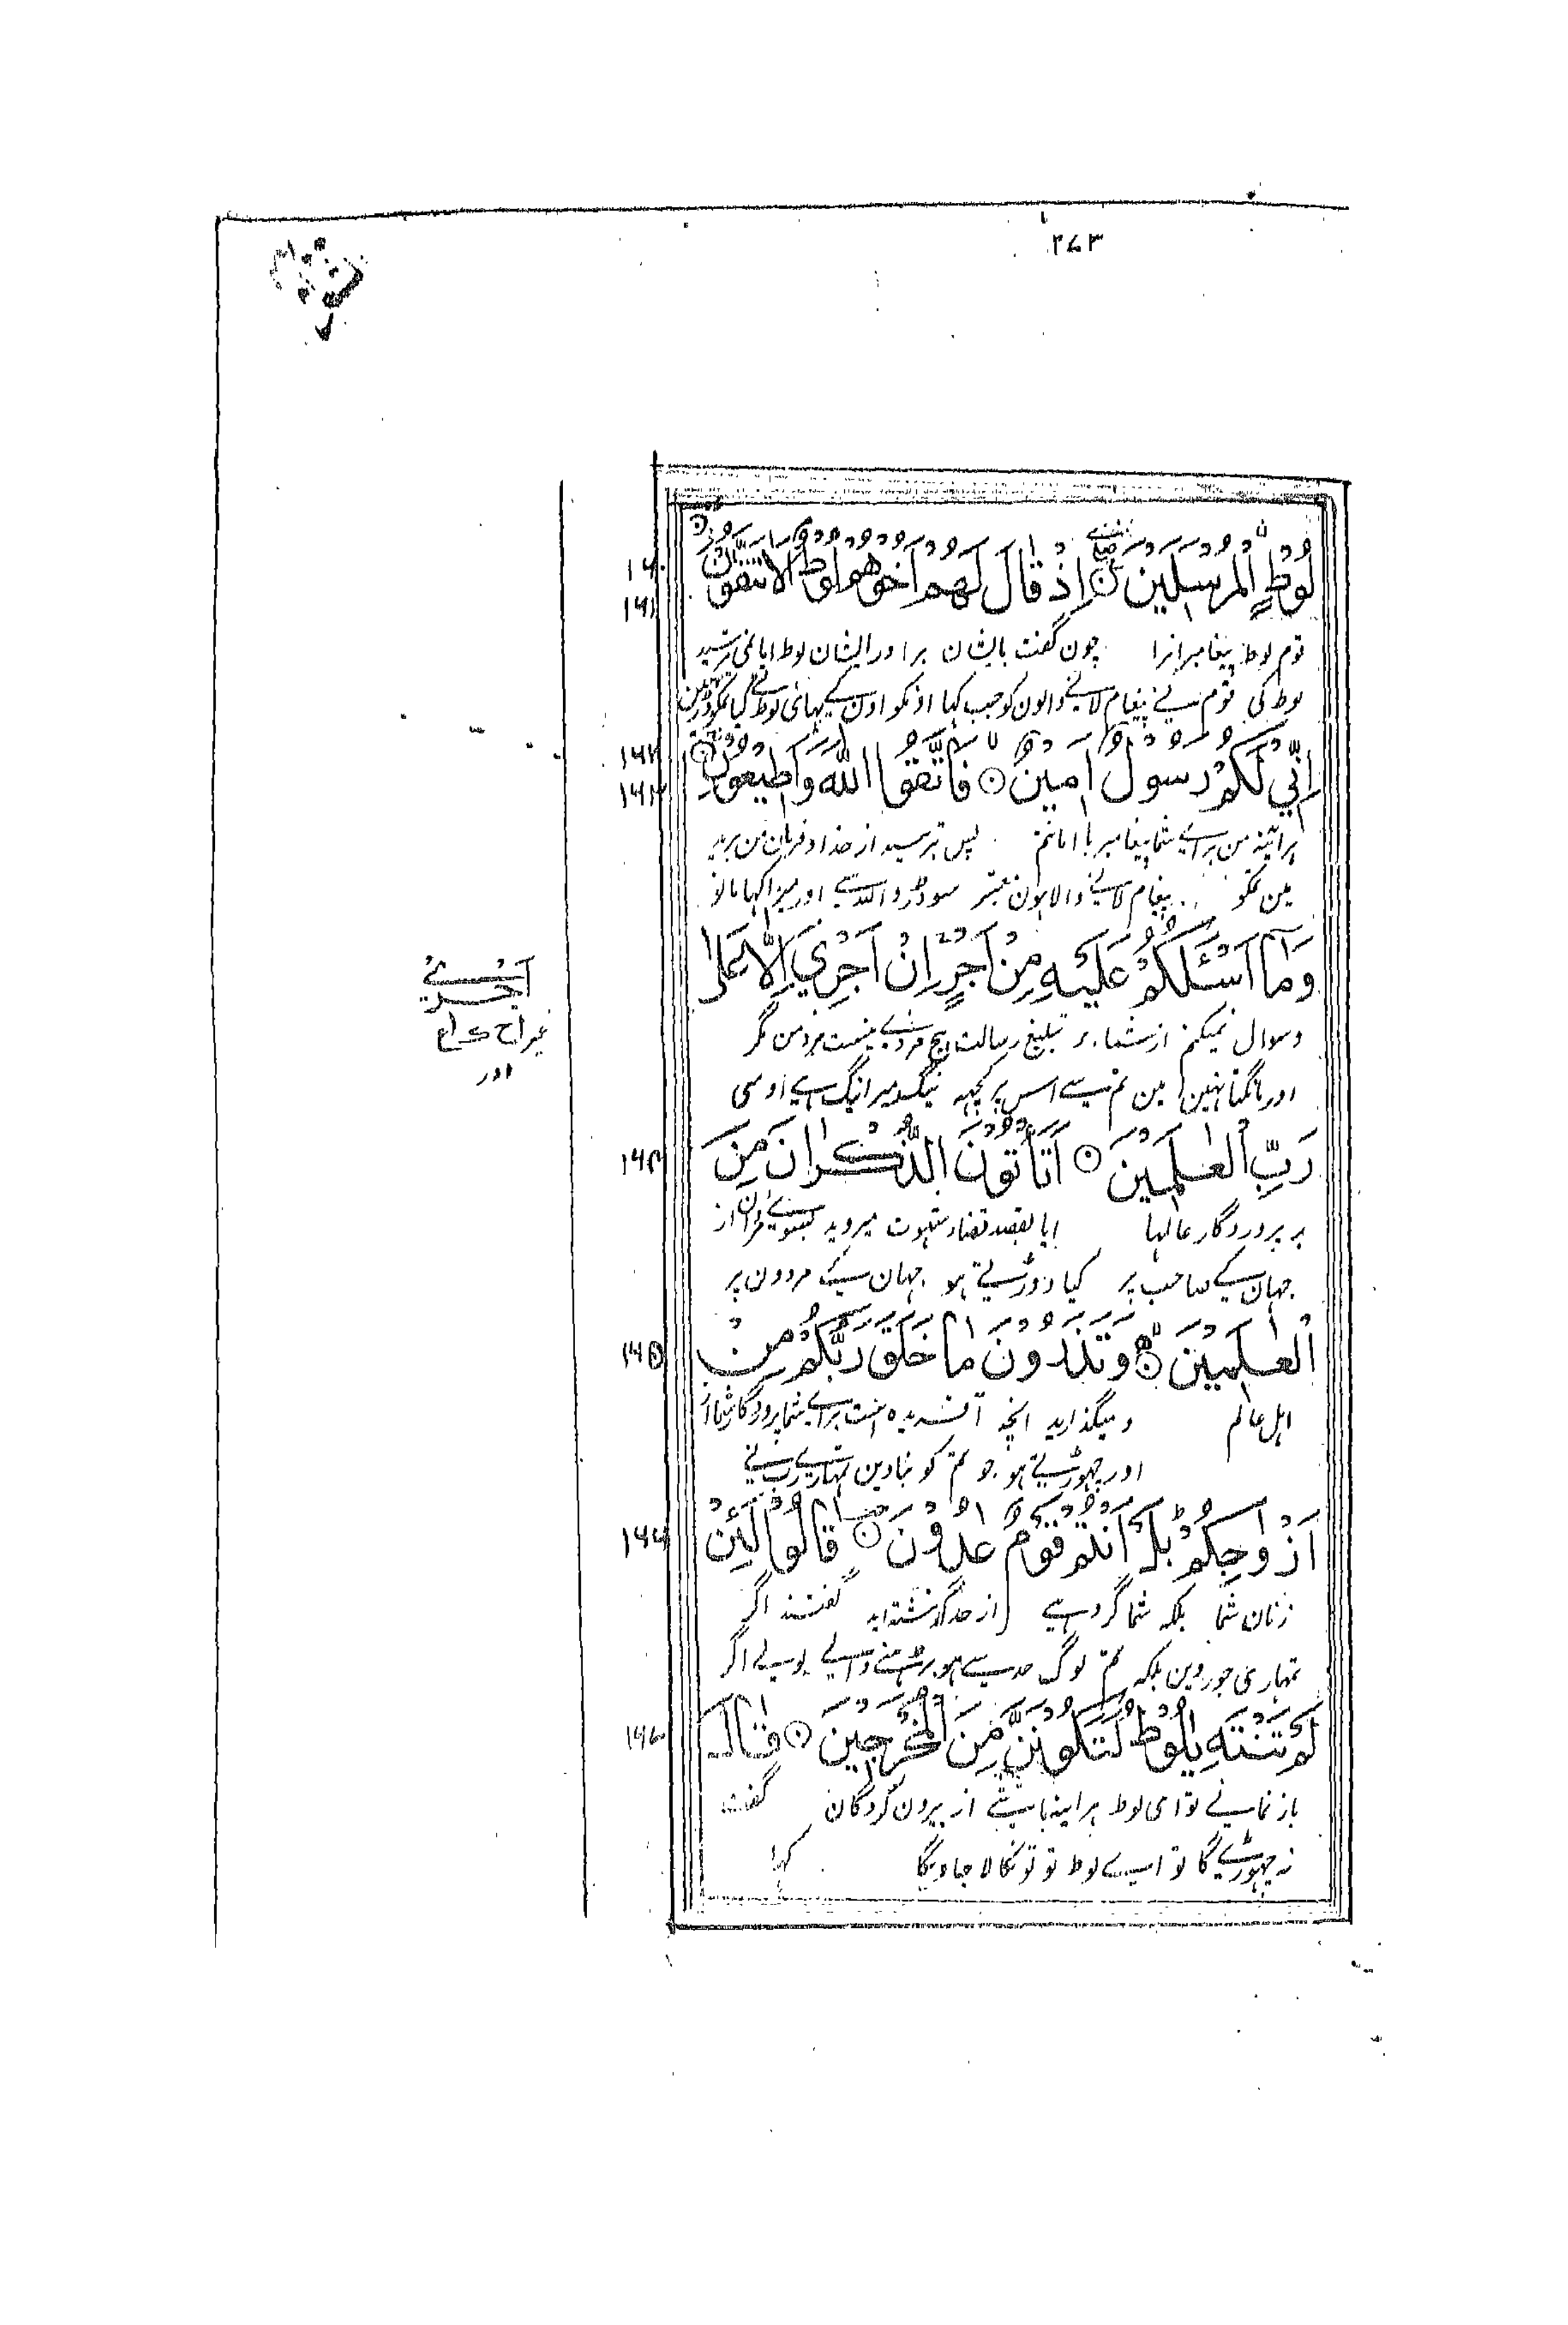 ۲۷۳
لُوْطِ ࣙالْمُرْسَلِيْنَ اِذْ قَالَ لَهُمْ اَخُوْهُمْ لُوْطٌ اَلَا تَتَّقُوْنَ
۱۶۰
۱۶۱
قوم لوط پیغامبرانرا چون گفت بایشان برادر ایشان لوط ایا نمی ترسید
لوط کی قوم نے پیغام لانے والون کو جب کہا اونکو اون کے بہائی لوط نے کیا تمکو ڈر نہین
اِنِّيْ لَكُمْ رَسُوْلٌ اَمِيْنٌ فَاتَّقُوا اللّٰهَ وَاَطِيْعُوْنِ
۱۶۲
۱۶۳
ہرآئینہ من برائے شما پیغامبر با امانتم پس بترسید از خدا و فرمان من برید
مین تمکو پیغام لانے والا ہون معتبر سو ڈرو اللہ سے اور میرا کہا مانو
وَمَآ اَسْـَٔلُكُمْ عَلَيْهِ مِنْ اَجْرٍ اِنْ اَجْرِيَ اِلَّا عَلٰى
وسوال نمیکنم از شما بر تبلیغ رسالت ہیچ مزدے نیست مزد من مگر
اور مانگتا نہین مین تم سے اس پر کچہہ نیگ میرا نیگ ہے اوسی
رَبِّ الْعٰلَمِيْنَ اَتَاْتُوْنَ الذُّكْرَانَ مِنَ
۱۶۴
بر پروردگار عالمہا ایا بقصد قضاء شہوت میروید بسوے مردان از
جہان کے صاحب پر کیا دوڑتے ہو جہان کے مردون پر
الْعٰلَمِيْنَ وَتَذَرُوْنَ مَا خَلَقَ لَكُمْ رَبُّكُمْ مِنْ
۱۶۵
اہل عالم ومیگذارید انچہ آفریدہ است برائے شما پروردگار شما از
اور چہوڑتے ہو جو تم کو بنادین تمہارے رب نے
اَزْوَاجِكُمْ بَلْ اَنْتُمْ قَوْمٌ عٰدُوْنَ قَالُوْا لَئِنْ
۱۶۶
زنان شما بلکہ شما گروہے از حد گذشتہ اید گفتند اگر
تمہاری جوروین بلکہ تم لوگ حد سے ہو بڑہنے والے بولے اگر
لَمْ تَنْتَهِ يٰلُوْطُ لَتَكُوْنَنَّ مِنَ الْمُخْرَجِيْنَ قَالَ
۱۶۷
باز نمانے تو ای لوط ہراینہ باشے از بیرون کردگان گفت
نہ چہوڑے گا تو اے لوط تو تو نکالا جاویگا کہا
اَجْرِيَ
اور